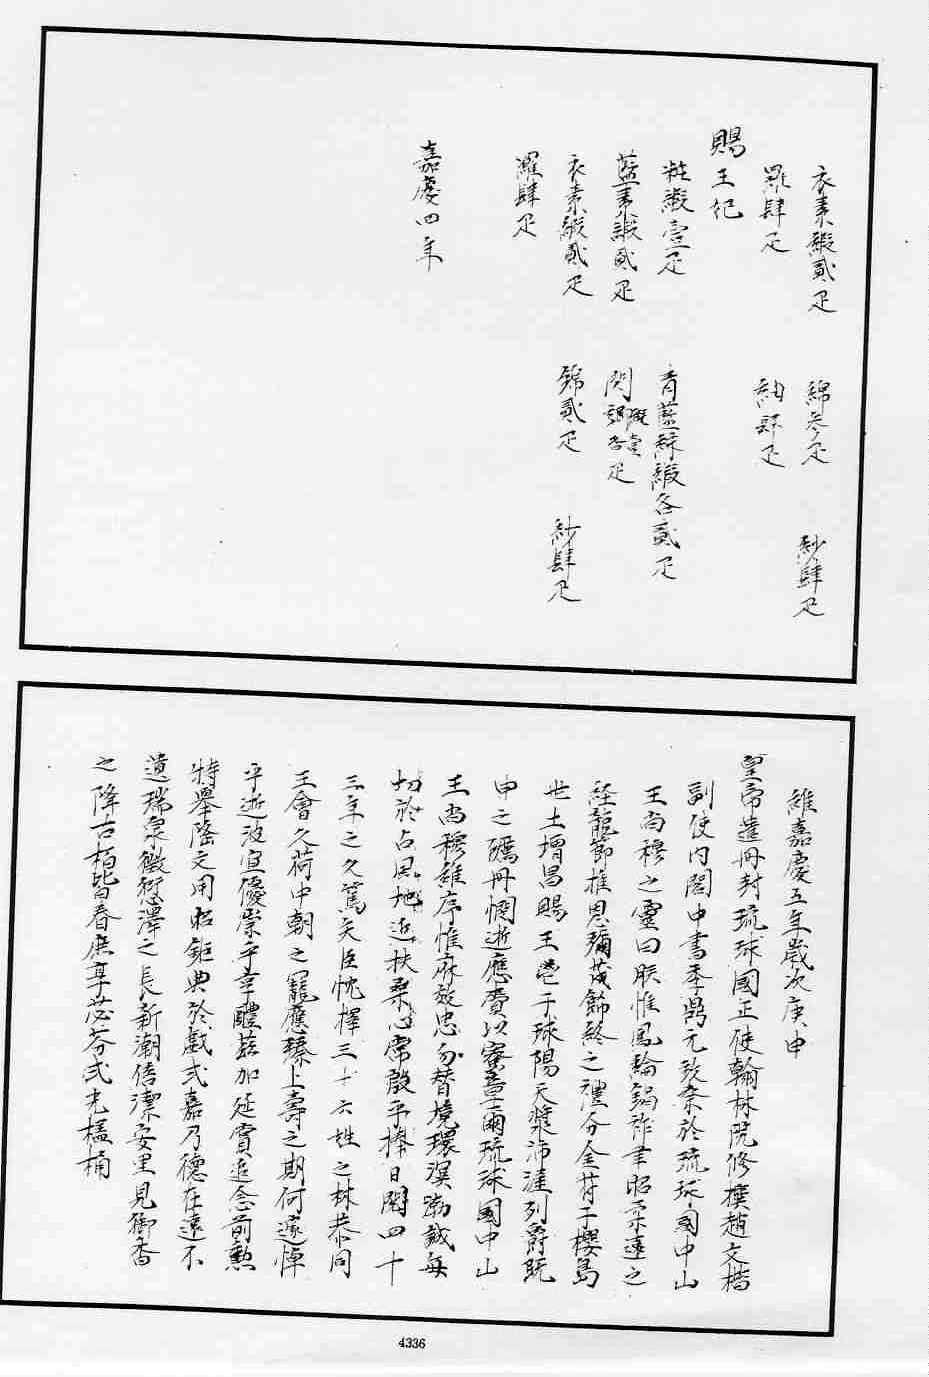 衣素緞貳疋 綿參疋 紗肆疋
羅肆疋 紬肆疋
賜王妃
粧緞壹疋 青藍綵緞各貳疋
藍素緞貳疋 閃 疋
衣素緞貳疋 錦貳疋 紗肆疋
羅肆疋
嘉慶四年
維嘉慶五年歲次庚申
皇帝遣冊封琉球國正使翰林院修撰趙文楷
副使內閣中書李鼎元致祭於琉球國中山
王尚穆之靈曰朕惟鳳綸錫祚聿昭柔遠之
經龍節推恩彌茂飾終之禮分金苻于櫻島
世土增昌賜王鬯于球陽天漿沛湩列爵既
申之礪冊惻逝應賁以寮章爾琉球國中山
王尚穆雒序惟府效忠勿替境環溟渤誠每
切於占風地近扶桑心常殷乎捧日閱四十
三年之久篤矢臣忱擇三十六姓之林恭同
王會久荷中朝之寵應臻上壽之期何遽悼
乎逝波宜優崇乎聿醴茲加延賞追念前勲
特舉隆文用昭鉅典於戲式嘉乃德在遠不
遺瑞泉徵愆澤之長新潮信潔安里見御香
之降古栢皆春庶享苾芬式光榼桷
4336